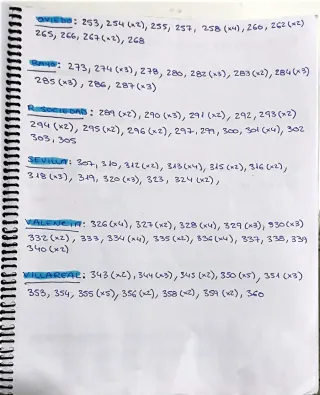 OVIEDO: 253, 254 (x2), 255, 257, 258 (x4), 260, 262 (x2)
265, 266, 267 (x2), 268
RAYO: 273, 274 (x3), 278, 280, 282 (x3), 283 (x2), 284 (x3)
285 (x3), 286, 287 (x3)
R. SOCIEDAD: 289 (x2), 290 (x3), 291 (x2), 292, 293 (x2)
294 (x2), 295 (x2), 296 (x2), 297, 299, 300, 301 (x4), 302
303, 305
SEVILLA: 307, 310, 312 (x2), 313 (x4), 315 (x2), 316 (x2),
318 (x3), 319, 320 (x3), 323, 324 (x2),
VALENCIA: 326 (x4), 327 (x2), 328 (x4), 329 (x3), 330 (x3)
332 (x2), 333, 334 (x4), 335 (x2), 336 (x4), 337, 338, 339
340 (x2)
VILLAREAL: 343 (x2), 344 (x3), 345 (x2), 350 (x5), 351 (x3)
353, 354, 355 (x5), 356 (x2), 358 (x2), 359 (x2), 360